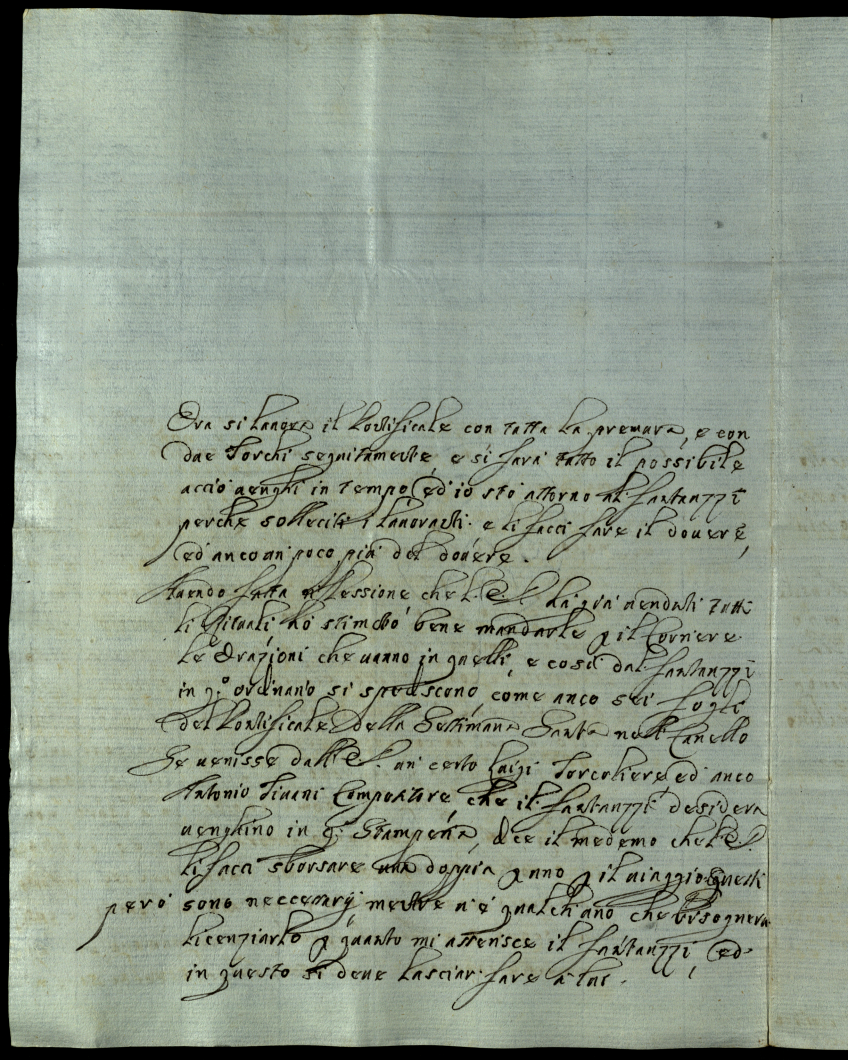 Ora si lavora il Pontificale con tutta la premura, e con
due Torchi seguitamente, e si farà tutto il possibile
acciò venghi in tempo, ed io stò attorno al Fantauzzi
perche solleciti i lavoranti. e li facci fare il dovere,
ed anco un poco più del dovere.
Havendo fatta riflessione che V. S. hà già venduti tutti
li Rituali hò stimato bene mandarle p il Corriere
le Orazioni che vanno in quelli, e così dal Fantauzzi
in q.o ordinario si spediscono, come anco sei fogli
del Pontificale della Settimana Santa nell Canello
Se venisse dall V. S. un certo Luigi Torcoliere ed anco
Antonio Tivani Compositore che il Fantauzzi desidera
venghino in q. Stamperia, dice il medemo che V. S.
li facci sborsare una doppia p uno p il viaggio. Questi
però sono neccesarij mentre n'è qualch'uno che bisognerà
licenziarlo p quanto mi asserisce il Fantauzzi, ed
in questo si deve lasciar fare à lui.